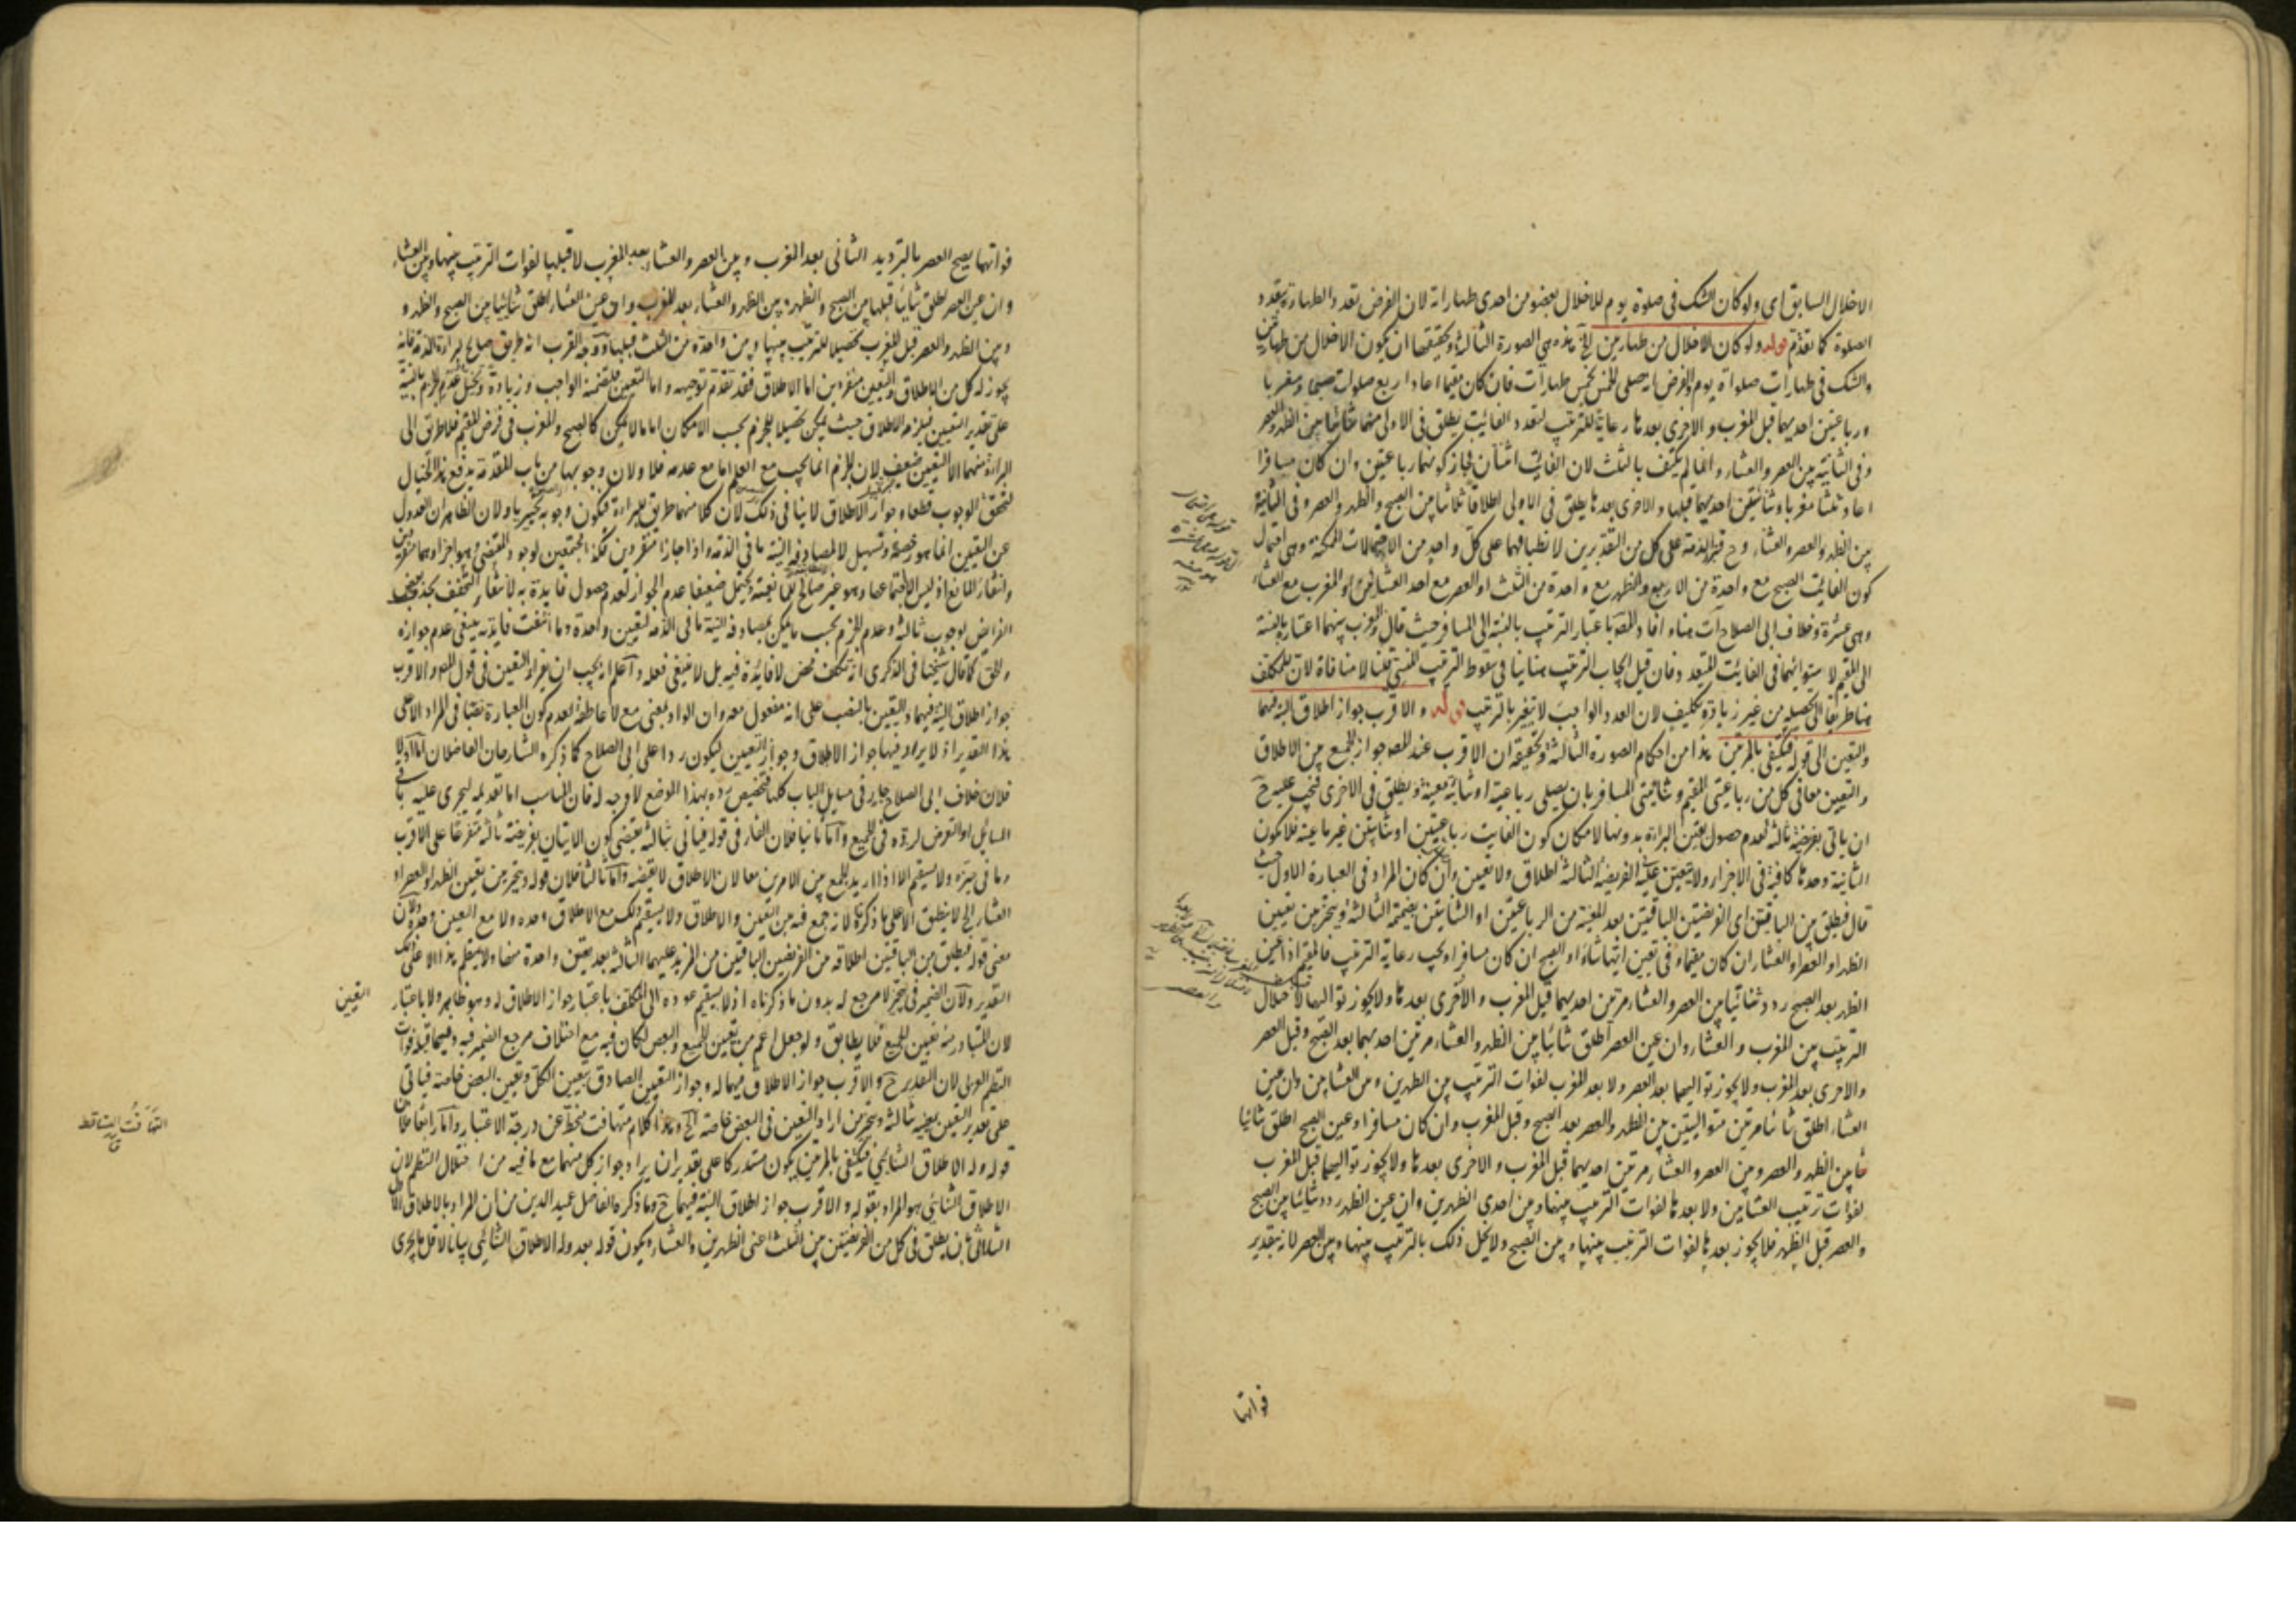 الاخلال السابق اى ولو كان الشك فى صلوة يوم للاخلال بعضو من احدى طهاراته لان الفرض تعدد الطهارة بتعدد
الصلوة كما تقدم قوله ولو كان الاخلال من طهارتين الخ هذه هى الصورة الثالثة وتحقيقها ان يكون الاخلال من طهارتين
والشك فى طهارات صلواة يوم والفرض انه صلى الخمس بخمس طهارات فان كان مقيما اعاد اربع صلوات صبحا ومغربا
ورباعيتين احديهما قبل المغرب والاخرى بعدها رعاية للترتيب لتعدد الفائت يطلق فى الاولى منهما ثنائيا بين الظهر والعصر
وفى الثانية بين العصر والعشاء وانما لم يكتف بالثلث لان الفائت اثنان فجاز كونهما رباعيتين وان كان مسافرا
اعاد ثلثا مغربا وثنائيتين احديهما قبلها والاخرى بعدها يطلق فى الاولى اطلاقا ثلاثيا بين الصبح والظهر والعصر وفى الثانية
بين الظهر والعصر والعشاء وح فتبرا الذمة على كل من التقديرين لانطباقهما على كل واحد من الاحتمالات الممكنة وهى احتمال
كون الفائت الصبح مع واحدة من الاربع والظهر مع واحدة من الثلث او العصر مع احد العشائين او المغرب مع العشاء
وهى عشرة وخلاف ابى الصلاح آت هنا وافاد المصه باعتبار الترتيب بالنسبة الى المسافر حيث قال والمغرب بينهما اعتباره بالنسبة
الى المقيم لاستوائهما فى الفائت المتعدد فان قيل ايجاب الترتيب هنا ينافى سقوط الترتيب للنسى قلنا لا منافاة لان للمكلف
هنا طريقا الى تحصيله من غير زيادة تكليف لان العدد الواجب لا يتغير بالترتيب قوله والاقرب جواز اطلاق النية فيهما
والتعيين الى قوله فيكتفى بالمرتين هذا من احكام الصورة الثالثة وتحقيقه ان الاقرب عند المصه جواز الجمع بين الاطلاق
والتعيين معا فى كل من رباعيتى المقيم وثنائيتى المسافر بان يصلى رباعية او ثنائية معينة ويطلق فى الاخرى فيجب عليه ح
ان ياتى بفريضة ثالثة لعدم حصول يقين البراءة بدونها لامكان كون الفائت رباعيتين او ثنائيتين غير ما عينه فلا يكون
الثانية وحدها كافية فى الاجزاء ولا يتعين عليه للفريضة الثالثة اطلاق ولا تعيين وان كان المراد فى العبارة الاول حيث
قال فيطلق بين الباقيتين اى الفريضتين الباقيتين بعد المعينة من الرباعيتين او الثنائيتين بضميمة الثالثة ويتخير بين تعيين
الظهر او العصر او العشاء ان كان مقيما وفى تعيين ايتها شاء او الصبح ان كان مسافرا ويجب رعاية الترتيب فالمقيم اذا عين
الظهر بعد الصبح ردد ثنائيا بين العصر والعشاء مرتين احديهما قبل المغرب والاخرى بعدها ولا يجوز تواليهما لاختلال
الترتيب بين المغرب والعشاء وان عين العصر اطلق ثنائيا بين الظهر والعشاء مرتين احديهما بعد الصبح وقبل العصر
والاخرى بعد المغرب ولا يجوز تواليهما بعد العصر ولا بعد المغرب لفوات الترتيب بين الظهرين وبين العشائين وان عين
العشاء اطلق ثنائيا مرتين متواليتين بين الظهر والعصر بعد الصبح وقبل المغرب وان كان مسافرا وعين الصبح اطلق ثنائيا
بين الظهر والعصر وبين العصر والعشاء مرتين احديهما قبل المغرب والاخرى بعدها ولا يجوز تواليهما قبل المغرب
لفوات ترتيب العشائين ولا بعدها لفوات الترتيب بينها وبين احدى الظهرين وان عين الظهر ردد ثنائيا بين الصبح
والعصر قبل الظهر فلا يجوز بعدها لفوات الترتيب بينها وبين الصبح ولا يخل ذلك بالترتيب بينها وبين العصر لانه بتقدير
فواتها
فواتها يصح العصر بالترديد الثانى بعد المغرب وبين العصر والعشاء بعد المغرب لا قبلها لفوات الترتيب بينها وبين العشاء
وان عين العصر اطلق ثنائيا قبلها بين الصبح والظهر وبين الظهر والعشاء بعد المغرب وان عين العشاء اطلق ثنائيا بين الصبح والظهر و
وبين الظهر والعصر قبل المغرب تحصيلا للترتيب بينها وبين واحدة من الثلث قبلها ووجه القرب انه طريق صالح لبراءة الذمة فانه
يجوز له كل من الاطلاق والتعيين منفردين اما الاطلاق فقد تقدم توجيهه واما التعيين فلتضمنه الواجب وزيادة وتخيل عدم الجزم بالنية
على تقدير التعيين فيلزم الاطلاق حيث يمكن تحصيلا للجزم بحسب الامكان اما ما لا يمكن كالصبح والمغرب فى فرض المقيم فلا طريق الى
البراءة منهما الا التعيين ضعيف لان الجزم انما يجب مع العلم اما مع عدمه فلا ولان وجوبها من باب المقدمة يدفع هذا الخيال
لتحقق الوجوب قطعا وجواز الاطلاق لا ينافى ذلك لان كلا منهما طريق للبراءة فيكون وجوبه تخييريا ولان الظاهر ان العدول
عن التعيين انما هو رخصة وتسهيل لا لمصادفة النية ما فى الذمة واذا جازا منفردين فكذا مجتمعين لوجود المقتضى وهو اجزاؤهما منفردين
وانتفاء المانع اذ ليس الا اجتماعها وهو غير صالح للمانعية ويحتمل ضعيفا عدم الجواز لعدم حصول فايدة به لانتفاء التخفيف بحذف بعض
الفرايض لوجوب ثالثة وعدم الجزم بحسب ما يمكن بمصادفة النية ما فى الذمة لتعيين واحدة وما انتفت فايدته ينبغى عدم جوازه
والحق كما قال شيخنا فى الذكرى انه تكلف محض لا فائدة فيه بل لا ينبغى فعله واعلم انه يجب ان يقرا والتعيين فى قول المصه والاقرب
جواز اطلاق النية فيهما والتعيين بالنصب على انه مفعول معه وان الواو بمعنى مع لا عاطفة لعدم كون العبارة نصا فى المراد الا على
هذا التقدير اذ لا يراد فيها جواز الاطلاق وجواز التعيين ليكون ردا على ابى الصلاح كما ذكره الشارحان الفاضلان اما اولا
فلان خلاف ابى الصلاح جار فى مسايل الباب كلها فتخصيص رده بهذا الموضع لا وجه له فان المناسب اما تقديمه ليجرى عليه باقى
المسائل او التعرض لرده فى الجميع واما ثانيا فلان الفاء فى قوله فياتى بثالثة يقتضى كون الاتيان بفريضة ثالثة متفرعا على الاقرب
وما فى حيزه ولا يستقيم الا اذا اريد الجمع بين الامرين معا لان الاطلاق لا يقتضيه واما ثالثا فلان قوله ويتخير بين تعيين الظهر او العصر او
العشاء الخ لا ينطبق الا على ما ذكرنا لانه جمع فيه بين التعيين والاطلاق ولا يستقيم ذلك مع الاطلاق وحده ولا مع التعيين وحده ولان
معنى قوله فيطلق بين الباقيتين اطلاقه بين الفريضتين الباقيتين من المزيد عليهما الثالثة بعد تعيين واحدة منها ولا ينتظم هذا الا على ذلك
التقدير ولان الضمير فى يتخير لا مرجع له بدون ما ذكرناه اذ لا يستقيم عوده الى المكلف باعتبار جواز الاطلاق له وهو ظاهر ولا باعتبار
التعيين
لان المتبادر منه تعيين الجميع فلا يطابق ولو جعل اعم من تعيين الجميع والبعض لكان فيه مع اختلاف مرجع الضمير فيه وفيما قبله فوات
النظم العربى لان التقدير ح والاقرب جواز الاطلاق فيهما له وجواز التعيين الصادق بتعيين الكل وتعيين البعض خاصة فياتى
على تقدير التعيين بعينه ثالثة ويتخير من اراد التعيين فى البعض خاصة الخ وهذا كلام متهافت منحط عن درجة الاعتبار واما رابعا فلان
التهافت التساقط
قوله وله الاطلاق الثنائى فيكتفى بالمرتين يكون مستدركا على تقدير ان يراد جواز كل منهما مع ما فيه من اختلال النظم لان
الاطلاق الثنائى هو المراد بقوله والاقرب جواز اطلاق النية فيهما ح وما ذكره الفاضل عميد الدين من ان المراد بالاطلاق الاول
الثلاثى بان يطلق فى كل من الفريضتين بين الثلث اعنى الظهرين والعشاء ويكون قوله بعد وله الاطلاق الثنائى بيانا لاقل ما يجزى